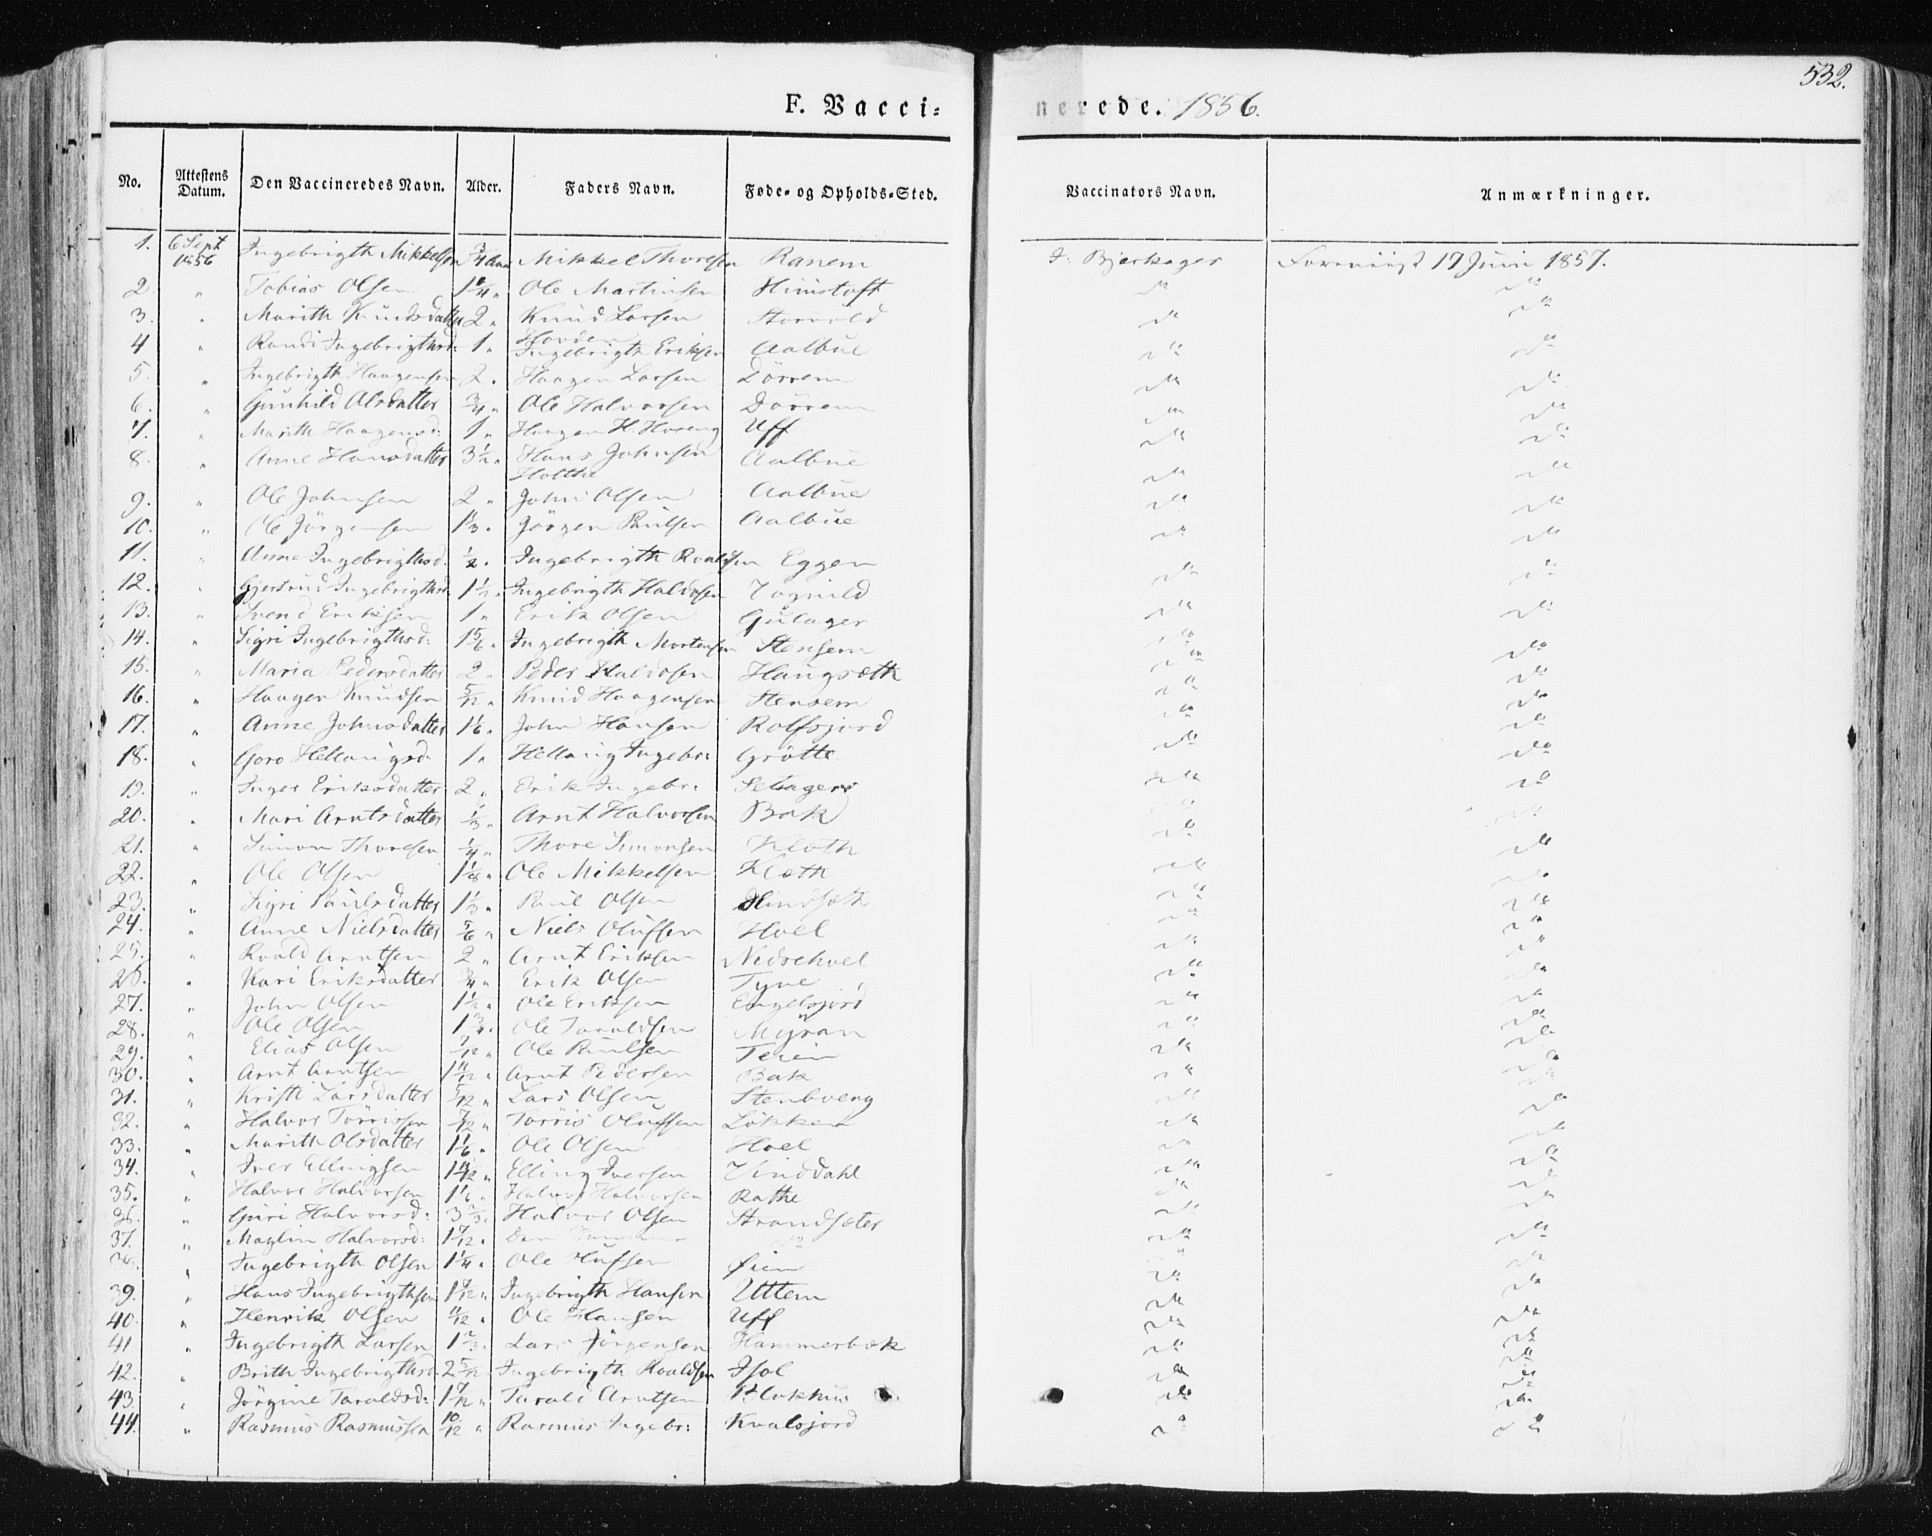 532.
F. Vaccinerede. 1856.
No. Attestens Datum. Den Vaccineredes Navn. Alder. Faders Navn. Føde- og Opholds-Sted. Vaccinators Navn. Anmærkninger.
1. 6 Sept 1856 Ingebrigth Mikkelsen 3/4 Mikkel Thoresen Ranem J. Bjerkager 17 Juni 1857.
2. " Tobias Olsen 1 1/4 " Ole Martinsen do do
3. " Marith Knudsdatter 2 " Knud Larsen do do
4 " Randi Ingebrigthsd: 1 " Ingebrigth Eriksen Aalbue do do
5. " Ingebrigth Haagensen 2 " Haagen Larsen Dörrem do do
6. " Gunhild Olsdatter 3/4 " Ole Halvorsen Dörrem do do
7. " Marith Haagensd: 1 " Haagen H. Uff do do
8. " Anne Hansdatter 3 1/2 " Hans Johnsen Holthe Aalbue do do
9. " Ole Johnsen 2 " John Olsen Aalbue do do
10. " Ole Jörgensen 1 1/3 " Jörgen Paulsen Aalbue do do
11. " Anne Ingebrigthsd. 1/2 " Ingebrigth Roaldsen Eggen do do
12. " Gjertrud Ingebrigthsd. 1 1/2 " Ingebrigth Haldosen do do
13. " Svend Eriksen 1 " Erik Olsen Gulager do do
14. " Sigri Ingebrigthsd: 1 5/6 " Ingebrigth Mortensen Stensem do do
15. " Maria Pedersdatter 2 " Peder Haldosen Haugsæth do do
16. " Haagen Knudsen 5/12 " Knud Haagensen Stensem do do
17. " Anne Johnsdatter 1 1/6 " John Hansen Rolfsjord do do
18. " Goro Hellaugsd. 1 " Hellaug Ingebr: Grötte do do
19. " Inger Eriksdatter 2 " Erik Ingebr: do do
20. " Mari Arntsdatter 1/3 " Arnt Halvorsen Bak do do
21. " Simon Thoresen 1/4 " Thore Simonsen Kleth do do
22. " Ole Olsen 1 1/8 " Ole Mikkelsen Kleth do do
23. " Sigri Paulsdatter 1 1/3 " Paul Olsen do do
24. " Anne Nielsdatter 5/6 " Niels Olufsen Hoel do do
25. " Roald Arntsen 2 " Arnt Eriksen do do
26. " Kari Eriksdatter 3/4 " Erik Olsen do do
27. " John Olsen 1 1/2 " Ole Eriksen Engelsjord do do
28. " Ole Olsen 1 3/4 " Ole Taraldsen Myran do do
29. " Elias Olsen 7/12 " Ole Paulsen do do
30. " Arnt Arntsen 1 11/12 " Arnt Pedersen Bak do do
31. " Kristi Larsdatter 5/12 " Lars Olsen do do
32. " Halvor Törrissen 7/12 " Törris Olufsen Lökken do do
33. " Marith Olsdatter 1 1/6 " Ole Olsen Hoel do do
34. " Iver Ellingsen " Elling Iversen Vinddahl do do
35. " Halvor Halvorsen 1 1/6 " Halvor Halvorsen Rathe do do
36. " Guri Halvorsd: 3 " Halvor Olsen Strandsæter do do
37. " Maglin Halvorsd: 1 7/12 " Den samme do do do
38. " Ingebrigth Olsen 1 1/4 " Ole Olufsen Øien do do
39. " Hans Ingebrigthsen " Ingebrigth Hansen Uttem do do
40. " Henrik Olsen 11/12 " Ole Hansen Uff do do
41 " Ingebrigth Larsen 1 2/3 " Lars Jörgensen Hammerbæk do do
42. " Brith Ingebrigthsd. 2 5/12 " Ingebrigth Roaldsen do do
43. " Jörgine Taraldsd: 1 7/12 " Tarald Arntsen Blokhus do do
44. " Rasmus Rasmussen 10/12 " Rasmus Ingebr: Kvalsjord do do